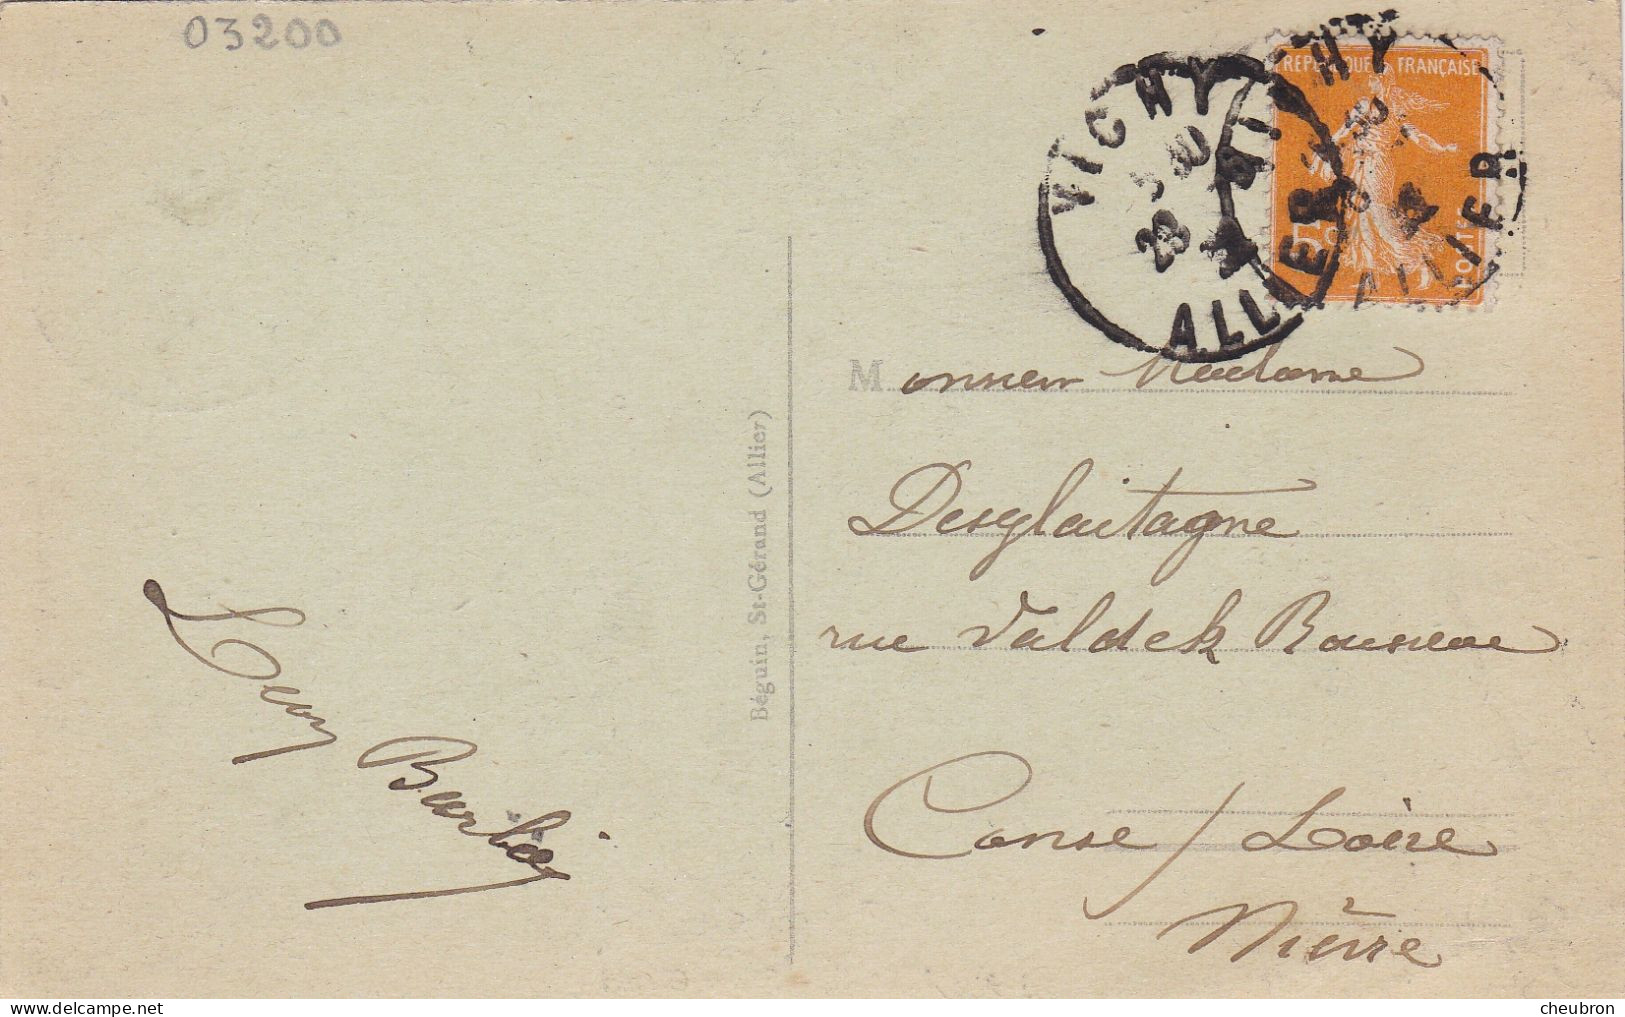 03200
VICHY
ALLIER
VICHY
ALLIER
REPUBLIQUE FRANÇAISE
POSTES
Béguin, St-Gérand (Allier)
Monsieur Madame
Desglaitagne
rue Valdek Rousseau
Conse / Loire
Nièvre
Leon
cheubron